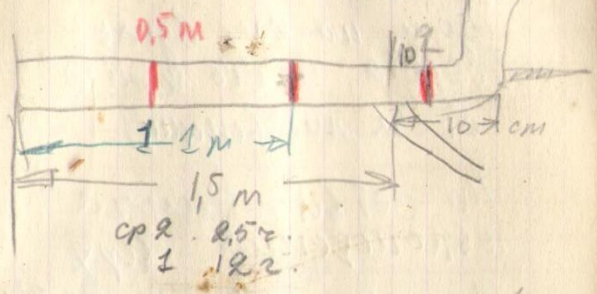 0,5 м
10
1
1 м
10 см
1,5 м
ср 2 2,5 г.
1 12 г.